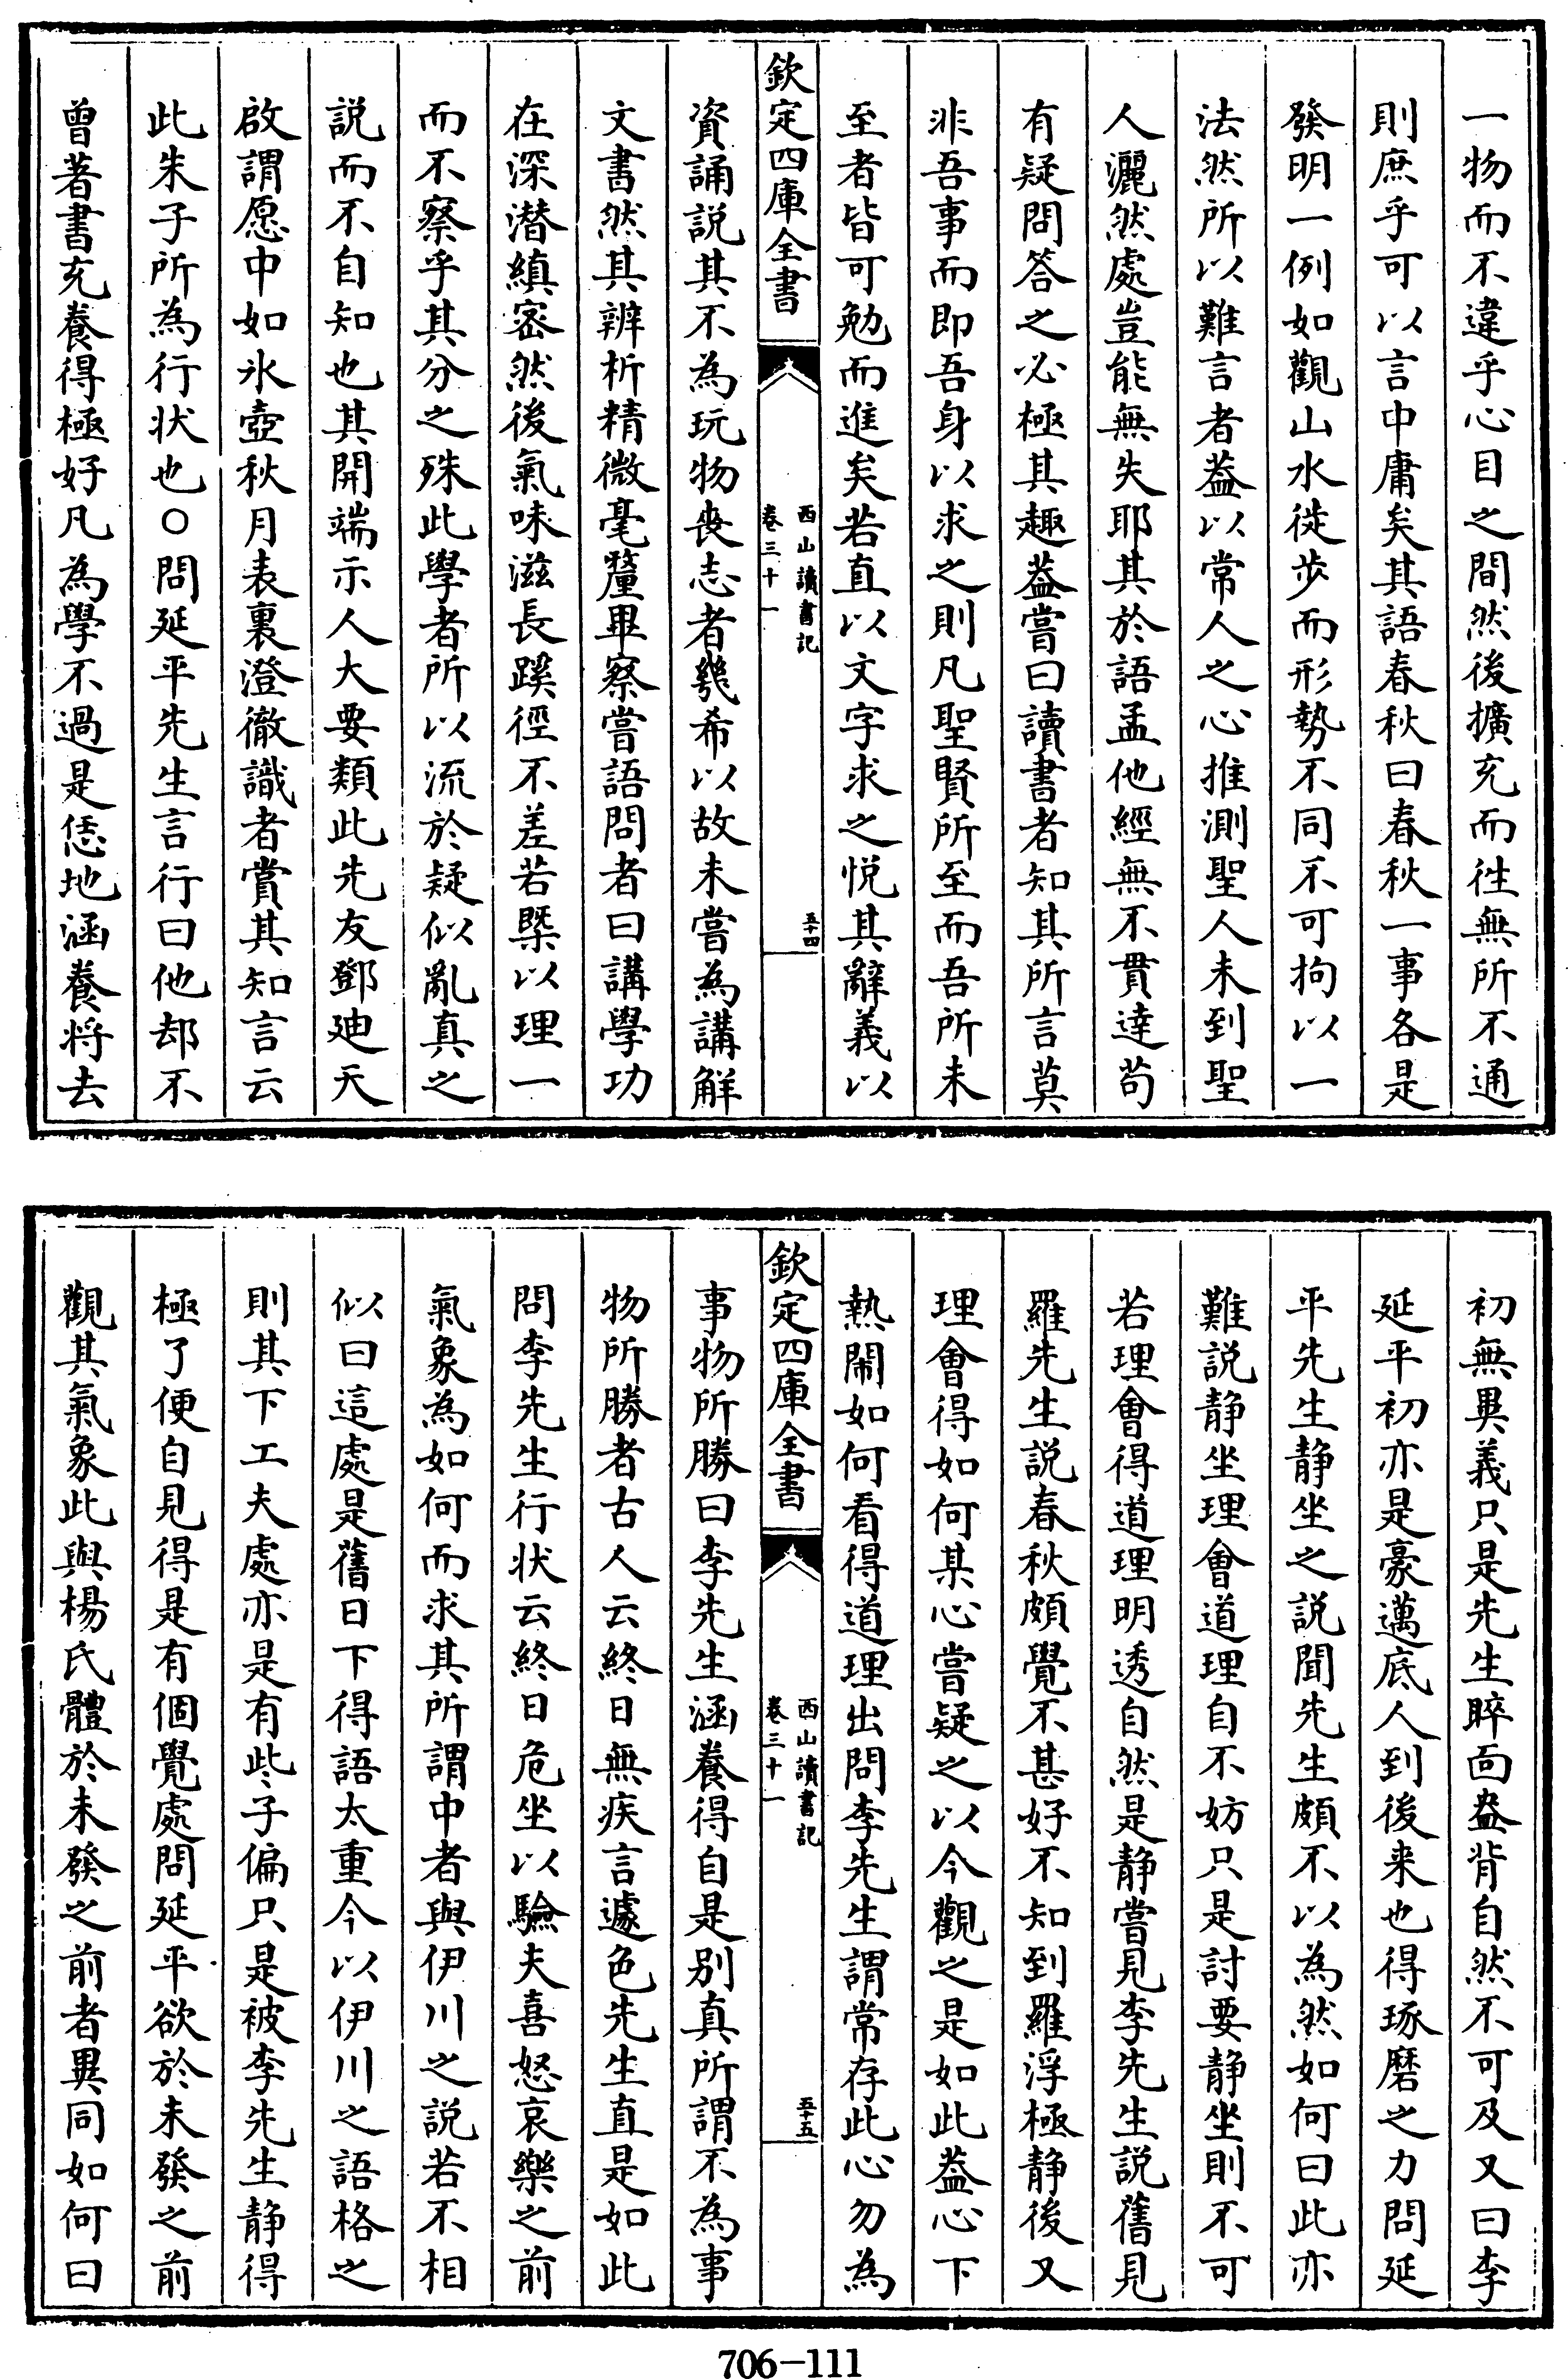 一物而不違乎心目之間然後擴充而徃無所不通
則庶乎可以言中庸矣其語春秋曰春秋一事各是
發明一例如觀山水徙步而形勢不同不可拘以一
法然所以難言者葢以常人之心推測聖人未到聖
人灑然處豈能無失耶其於語孟他經無不貫達茍
有疑問答之必極其趣葢嘗曰讀書者知其所言莫
非吾事而即吾身以求之則凡聖賢所至而吾所未
至者皆可勉而進矣若直以文字求之悦其辭義以
欽定四庫全書
西山讀書記
卷三十一
五十四
資誦説其不為玩物喪志者㡬希以故未嘗為講解
文書然其辨析精微毫釐畢察嘗語問者曰講學功
在深潜縝宻然後氣味滋長蹊徑不差若槩以理一
而不察乎其分之殊此學者所以流於疑似亂真之
説而不自知也其開端示人大要類此先友鄧廸天
啟謂愿中如氷壺秋月表裏澄徹識者賞其知言云
此朱子所為行状也○問延平先生言行曰他却不
曾著書充養得極好凡為學不過是恁地涵養将去
初無異義只是先生睟面盎背自然不可及又曰李
延平初亦是豪邁底人到後来也得琢磨之力問延
平先生静坐之説聞先生頗不以為然如何曰此亦
難説静坐理會道理自不妨只是討要静坐則不可
若理會得道理明透自然是静嘗見李先生説舊見
羅先生説春秋頗覺不甚好不知到羅浮極静後又
理會得如何某心嘗疑之以今觀之是如此葢心下
熱閙如何看得道理出問李先生謂常存此心勿為
欽定四庫全書
西山讀書記
卷三十一
五十五
事物所勝曰李先生涵養得自是别真所謂不為事
物所勝者古人云終日無疾言遽色先生直是如此
問李先生行状云終日危坐以驗夫喜怒哀樂之前
氣象為如何而求其所謂中者與伊川之説若不相
似曰這處是舊日下得語太重今以伊川之語格之
則其下工夫處亦是有些子偏只是被李先生静得
極了便自見得是有個覺處問延平欲於未發之前
觀其氣象此與楊氏體於未發之前者異同如何曰
706-111